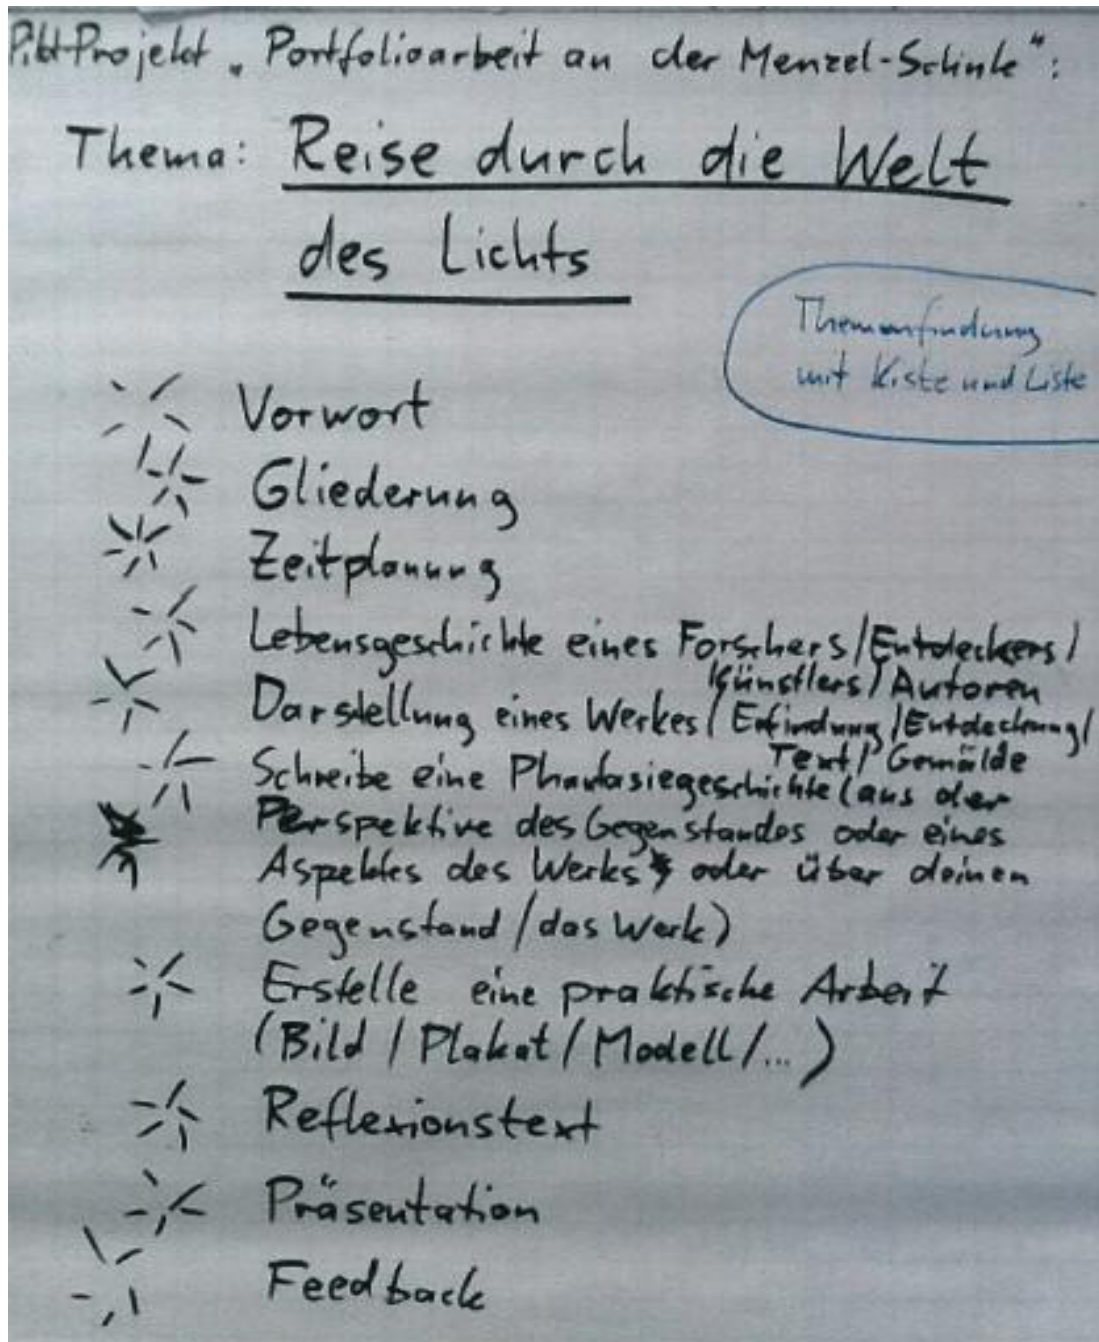 Pilot Projekt „Portfolioarbeit an der Menzel-Schule":
Thema: Reise durch die Welt
des Lichts
Themenfindung
mit Kiste und Liste
Vorwort
Gliederung
Zeitplanung
Lebensgeschichte eines Forschers/Entdeckers/
Künstlers/Autoren
Darstellung eines Werkes/Erfindung/Entdeckung/
Text/Gemälde
Schreibe eine Phantasiegeschichte (aus der
Perspektive des Gegenstandes oder eines
Aspektes des Werks oder über deinen
Gegenstand/das Werk)
Erstelle eine praktische Arbeit
(Bild/Plakat/Modell/...)
Reflexionstext
Präsentation
Feedback